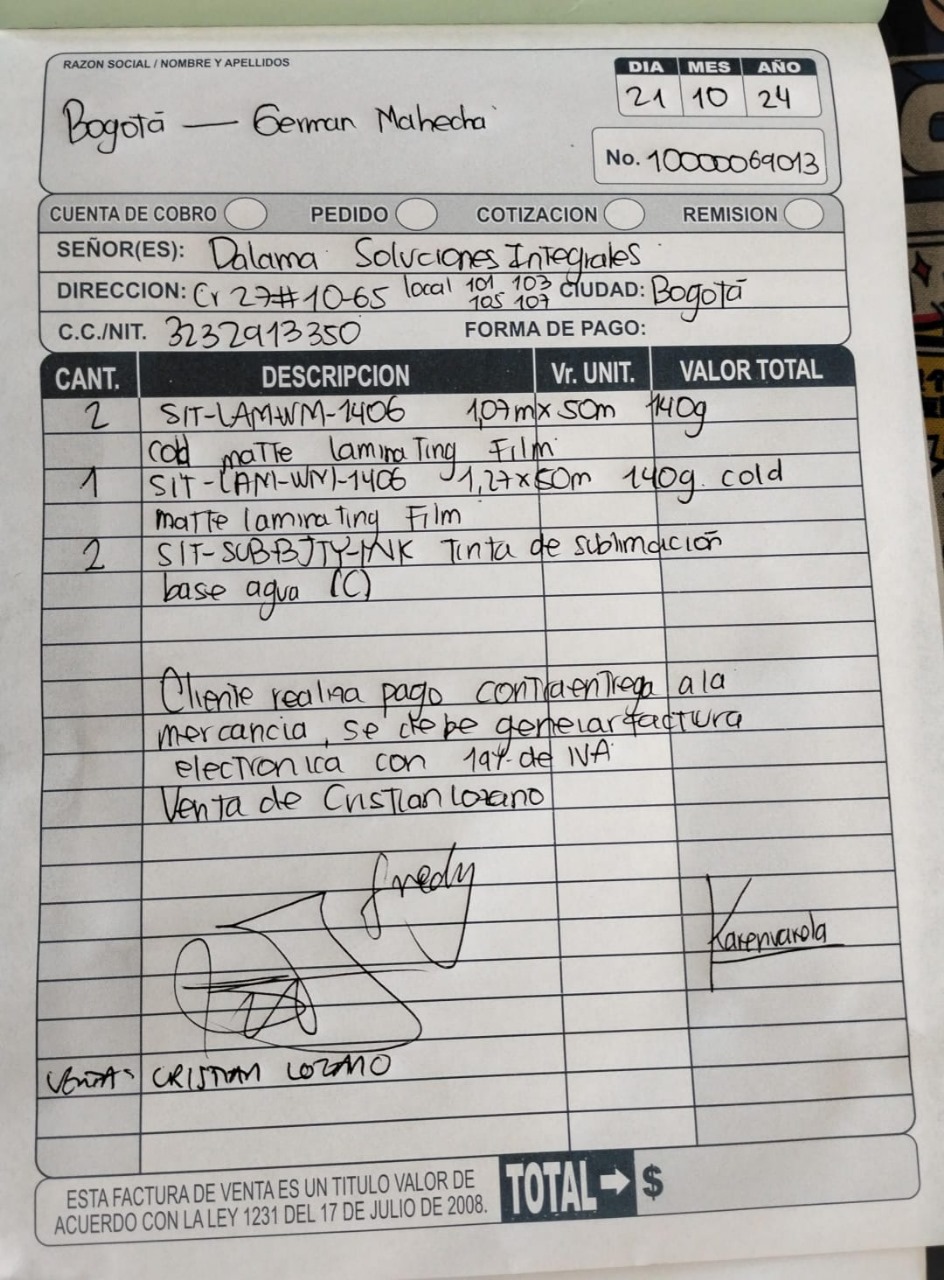 RAZON SOCIAL / NOMBRE Y APELLIDOS
DIA MES AÑO
21 10 24
Bogotá — German Mahecha
No. 10000069013
CUENTA DE COBRO PEDIDO COTIZACION REMISION
SEÑOR(ES): Dalama Soluciones Integrales
DIRECCION: Cr 27#10-65 local 101 103 105 107 CIUDAD: Bogotá
C.C./NIT. 3232913350 FORMA DE PAGO:
CANT. DESCRIPCION Vr. UNIT. VALOR TOTAL
2 SIT-LAM-WM-1406 1,07m x 50m 140g
cold matte laminating Film
1 SIT-LAM-WM-1406 1,27x50m 140g. cold
matte laminating Film
2 SIT-SUB-BJTY-INK Tinta de sublimación
base agua (C)
Cliente realiza pago contraentrega a la
mercancia, se debe generar factura
electronica con 19% de IVA
Venta de Cristian Lozano
fredy
Karenvarela
VENTA: CRISTIAN LOZANO
ESTA FACTURA DE VENTA ES UN TITULO VALOR DE
ACUERDO CON LA LEY 1231 DEL 17 DE JULIO DE 2008.
TOTAL→ $